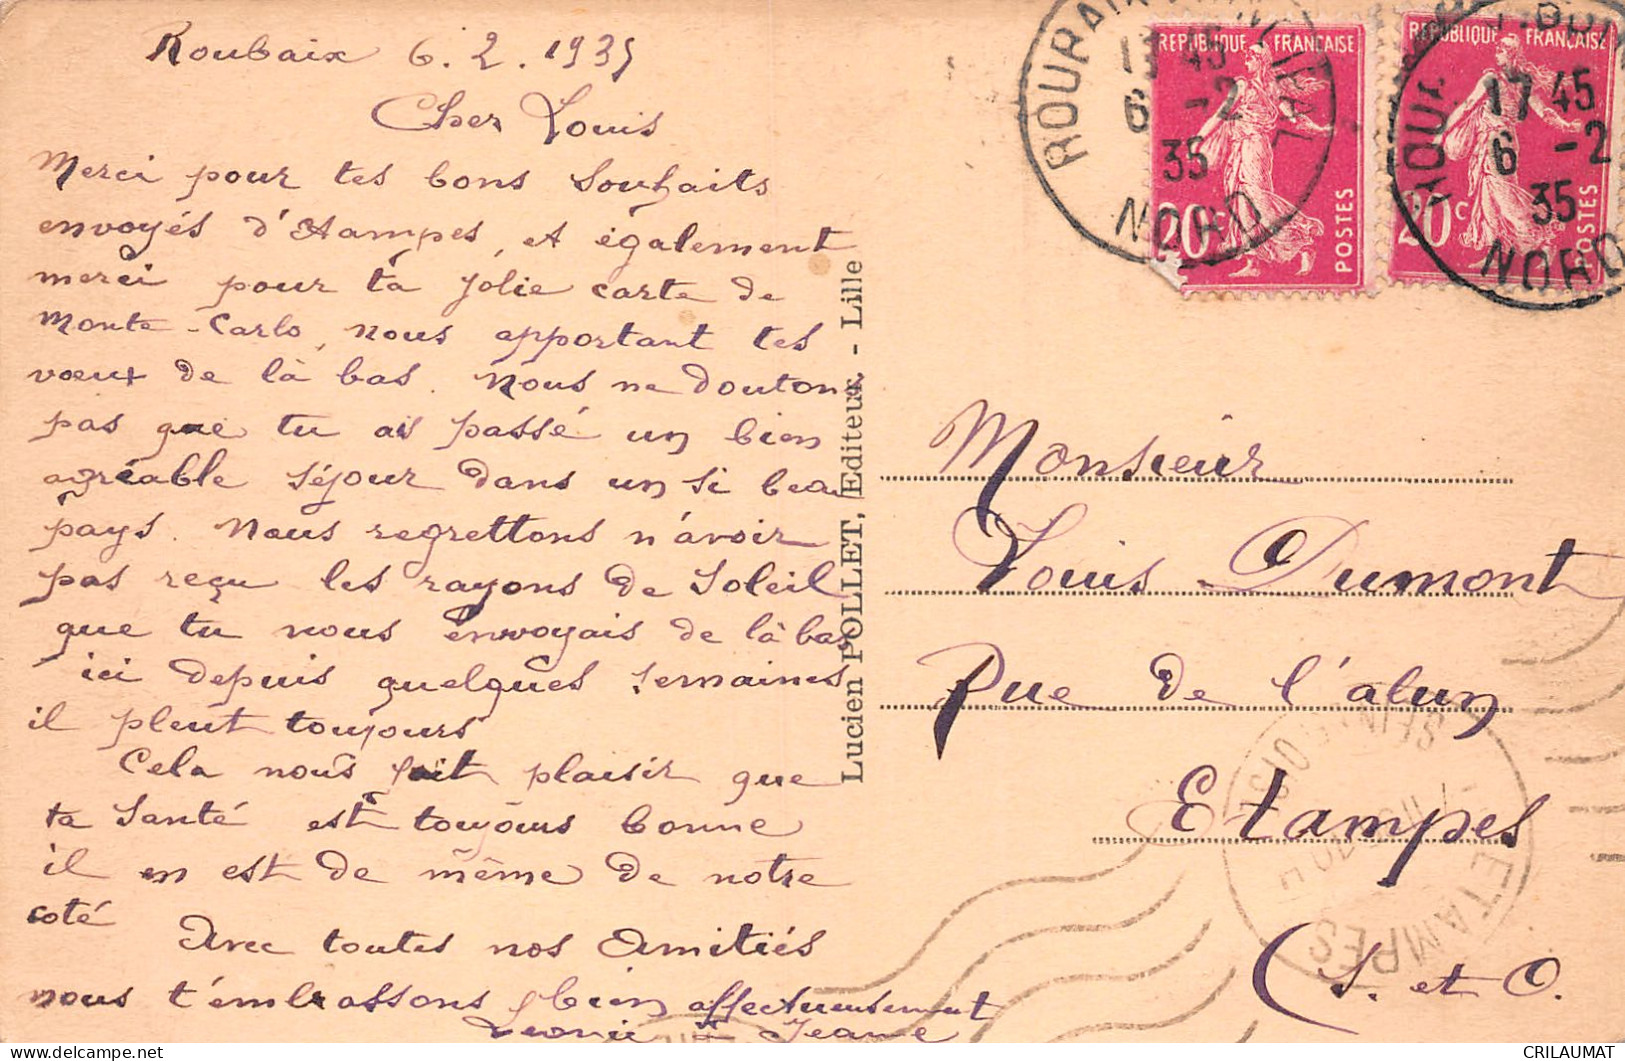 Roubaix 6.2.1935
Cher Louis
Merci pour tes bons souhaits
envoyés d'Etampes, et également
merci pour ta jolie carte de
Monte-Carlo, nous apportant tes
vœux de là bas. Nous ne doutons
pas que tu as passé un bien
agréable séjour dans un si beau
pays. Nous regrettons n'avoir
pas reçu les rayons de soleil
que tu nous envoyais de là bas
ici depuis quelques semaines
il pleut toujours
Cela nous fait plaisir que
ta santé est toujours bonne
il en est de même de notre
coté
Avec toutes nos Amitiés
nous t'embrassons bien affectueusement
Léonie & Jeanne
Lucien POLLET, Editeur, - Lille
REPUBLIQUE FRANÇAISE
20c POSTES
REPUBLIQUE FRANÇAISE
20c POSTES
ROUBAIX
17 45
6 -2
35
NORD
ROUB
17 45
6 -2
35
NORD
Monsieur
Louis Dumont
Rue de l'alun
Etampes
(S. et O.
ETAMPES
SEINE
OISE
CRILAUMAT